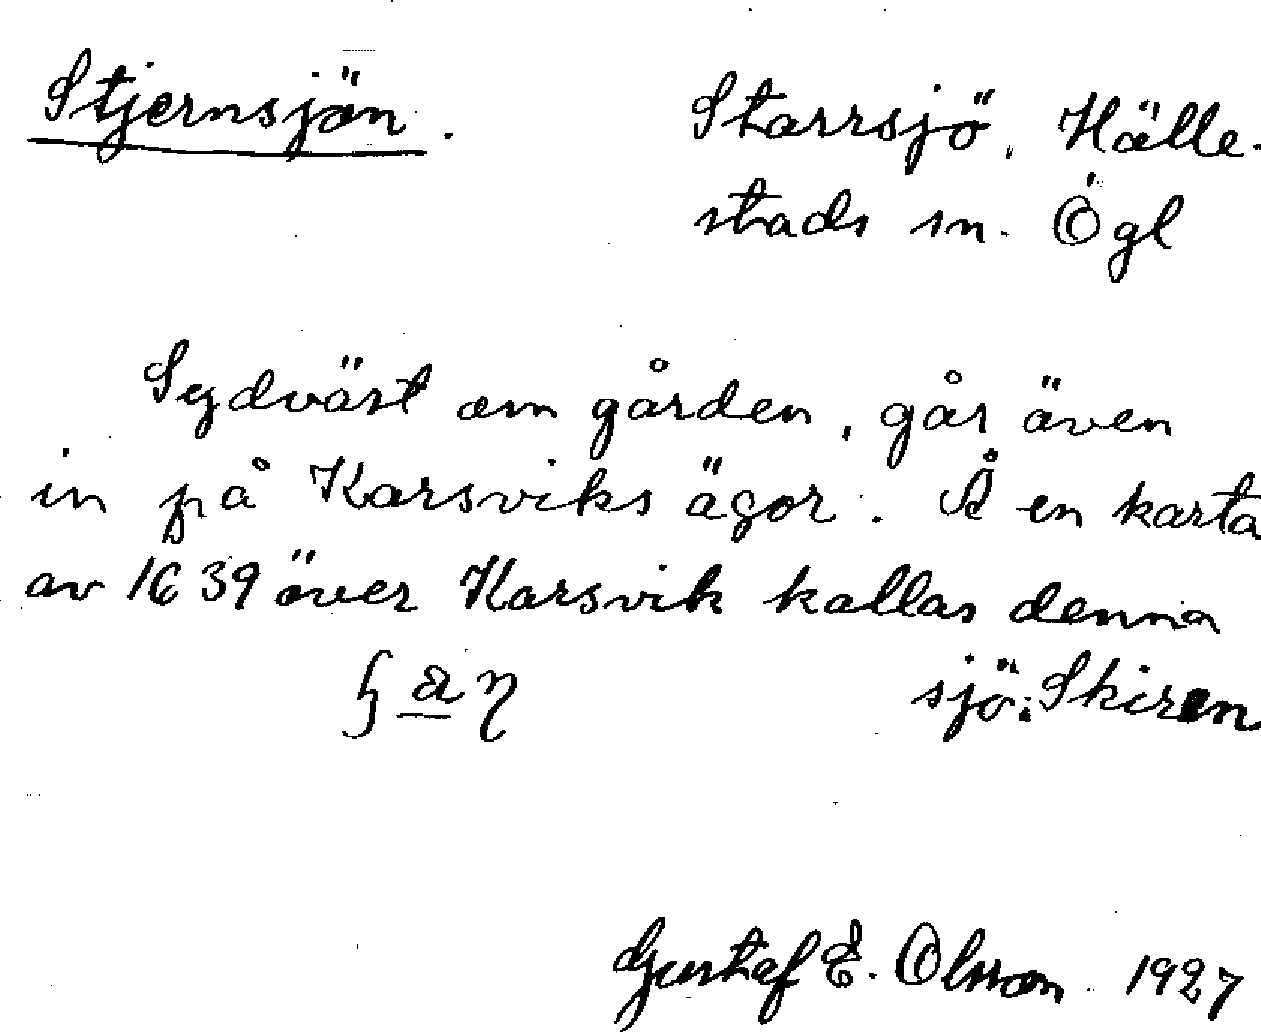 Stjernsjön.
Starrsjö, Hälle-
stads sn. Ögl
Sydväst om gården, går även
in på Karsviks ägor. Å en karta
av 1639 över Karsvik kallas denna
sjö: Skiren
Gustaf E. Olsson 1927